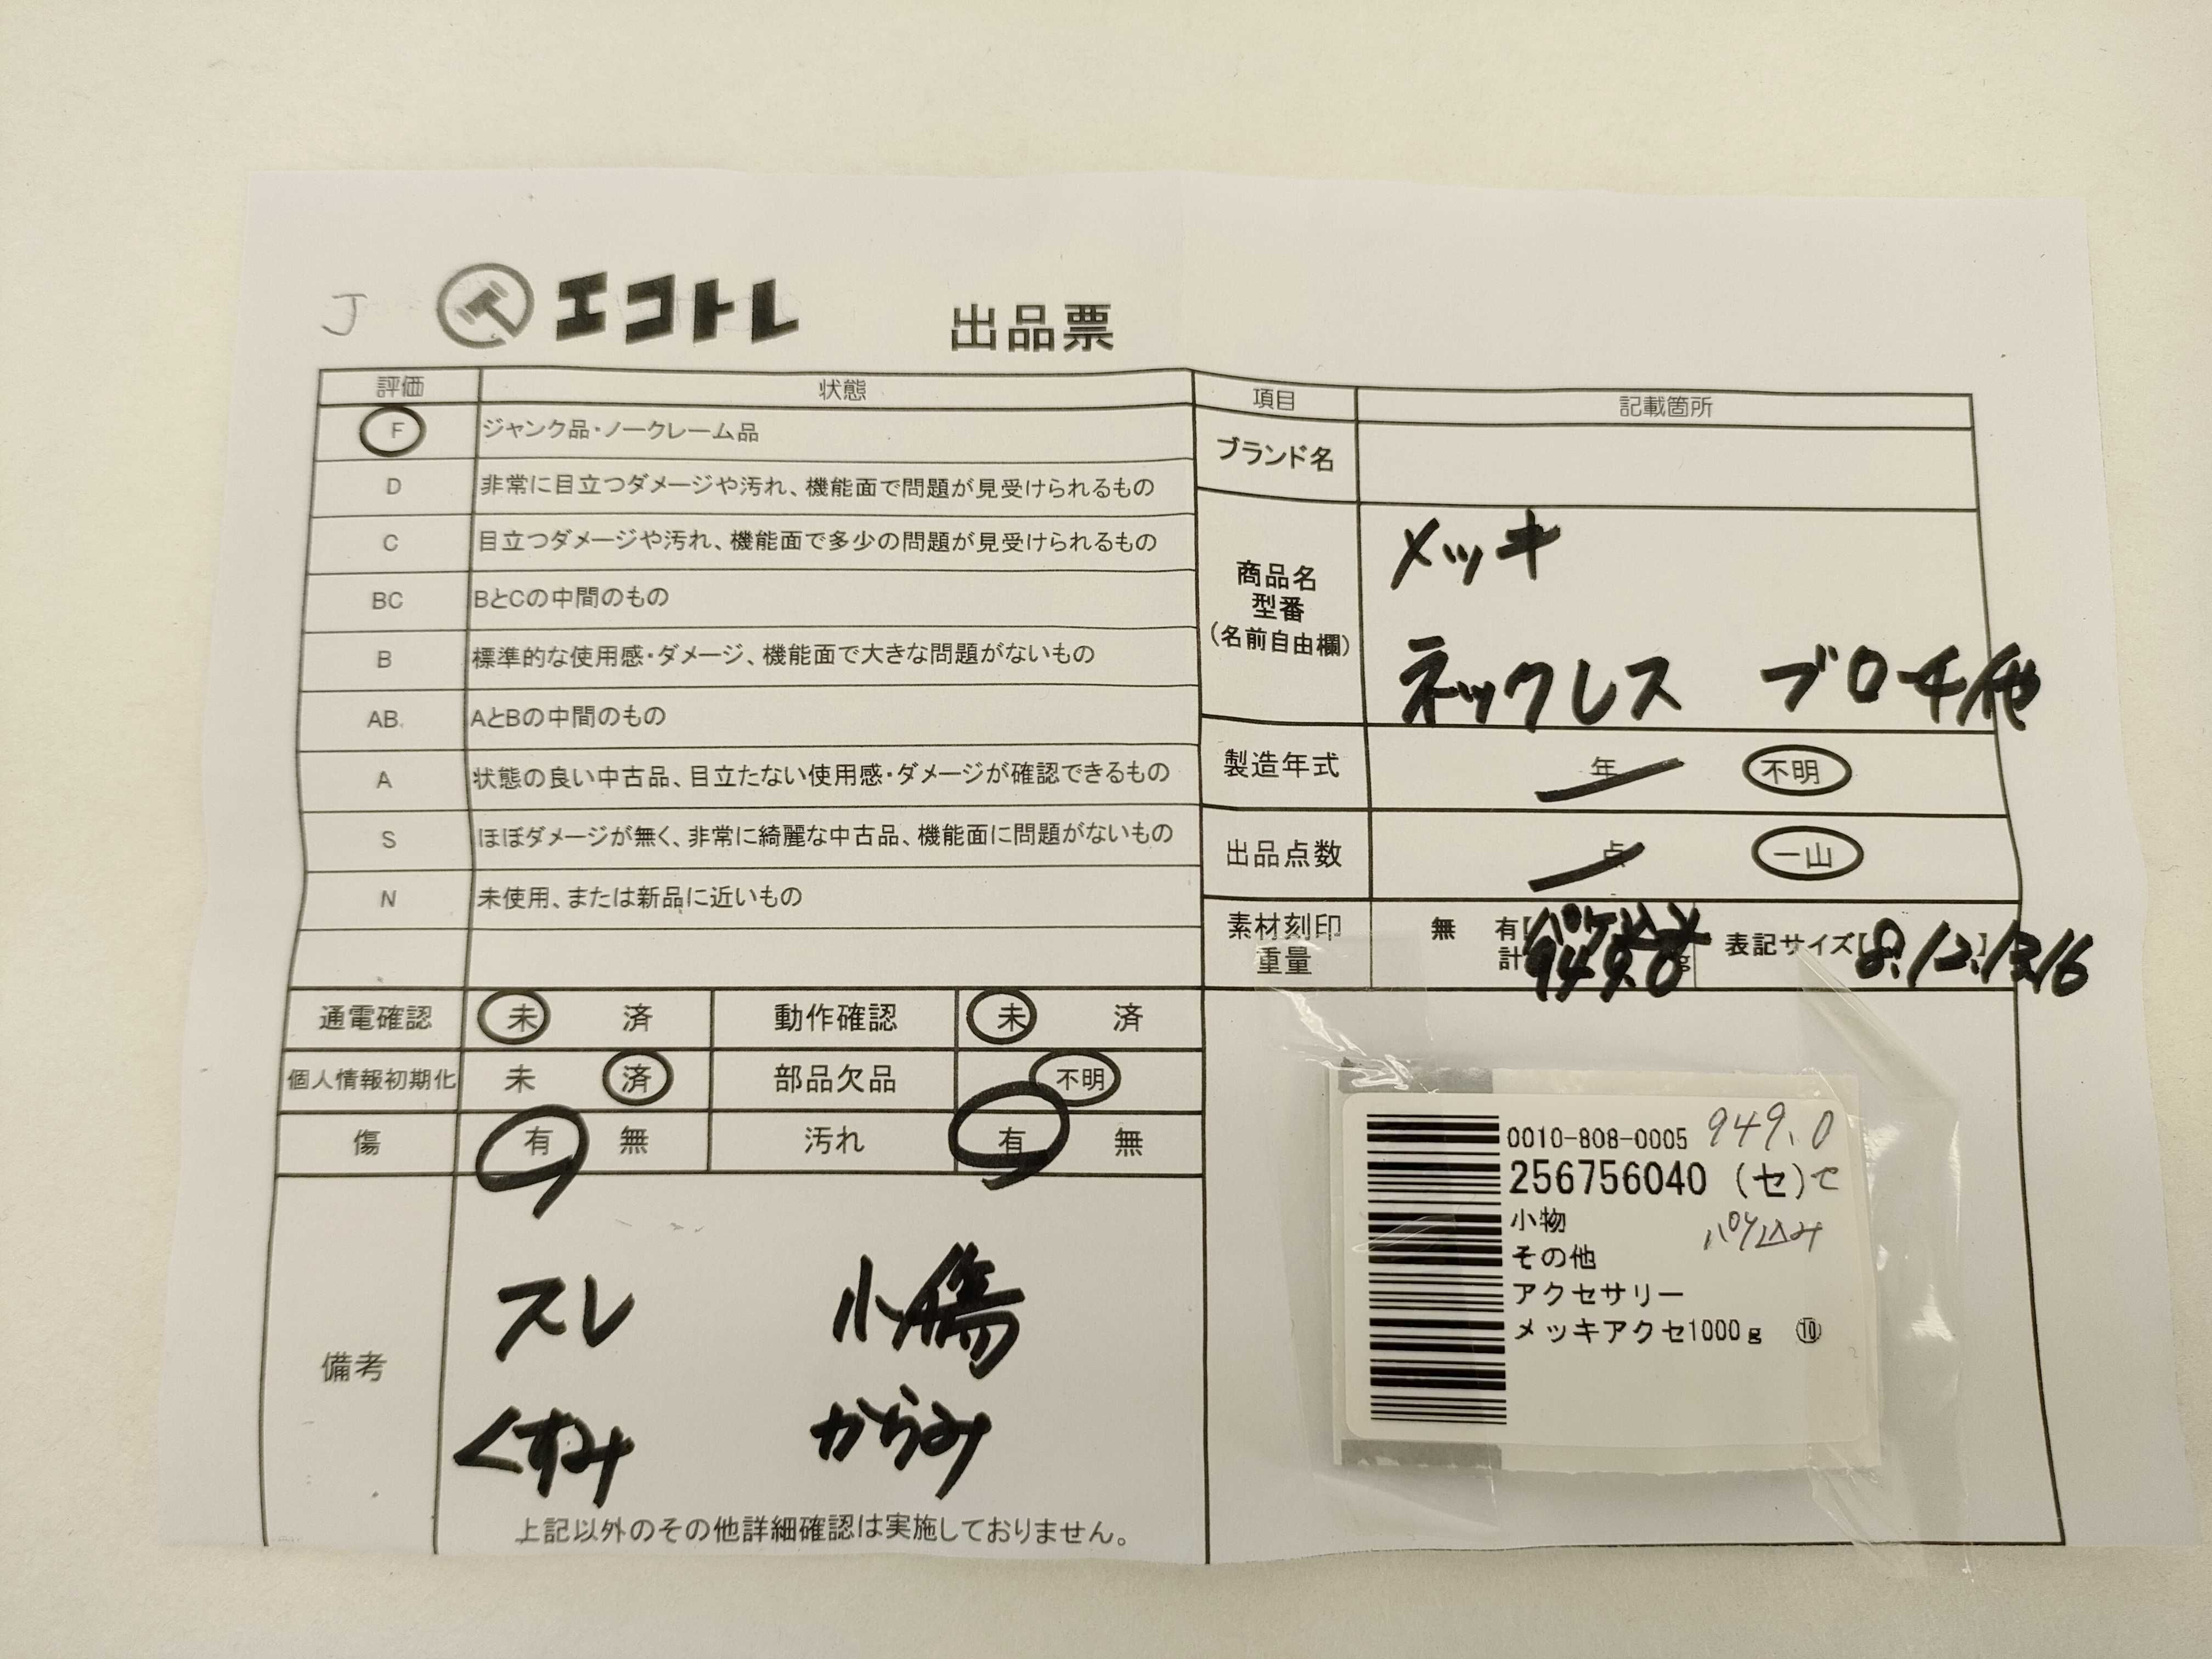 J エコトレ 出品票
評価 状態
F ジャンク品・ノークレーム品
D 非常に目立つダメージや汚れ、機能面で問題が見受けられるもの
C 目立つダメージや汚れ、機能面で多少の問題が見受けられるもの
BC BとCの中間のもの
B 標準的な使用感・ダメージ、機能面で大きな問題がないもの
AB AとBの中間のもの
A 状態の良い中古品、目立たない使用感・ダメージが確認できるもの
S ほぼダメージが無く、非常に綺麗な中古品、機能面に問題がないもの
N 未使用、または新品に近いもの
通電確認 未 済 動作確認 未 済
個人情報初期化 未 済 部品欠品 不明
傷 有 無 汚れ 有 無
備考
スレ 小傷
くすみ からみ
上記以外のその他詳細確認は実施しておりません。
項目 記載箇所
ブランド名
商品名
型番
(名前自由欄)
メッキ
ネックレス ブローチ他
製造年式 年 不明
出品点数 点 一山
素材刻印 無 有【
重量 計 949.0 g 表記サイズ【8.12.13.16
0010-808-0005 949.0
256756040 (セ)て
小物 パケ込み
その他
アクセサリー
メッキアクセ1000g ⑩